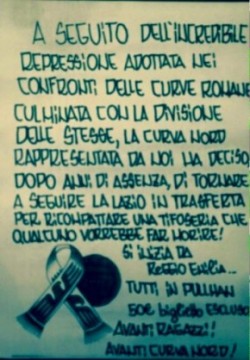 A SEGUITO DELL'INCREDIBILE
REPRESSIONE ADOTTATA NEI
CONFRONTI DELLE CURVE ROMANE
CULMINATA CON LA DIVISIONE
DELLE STESSE, LA CURVA NORD
RAPPRESENTATA DA NOI HA DECISO,
DOPO ANNI DI ASSENZA, DI TORNARE
A SEGUIRE LA LAZIO IN TRASFERTA
PER RICOMPATTARE UNA TIFOSERIA CHE
QUALCUNO VORREBBE FAR MORIRE!
SI INIZIA DA
REGGIO EMILIA...
TUTTI IN PULLMAN
50€ biglietto ESCLUSO
AVANTI RAGAZZI!!
AVANTI CURVA NORD!